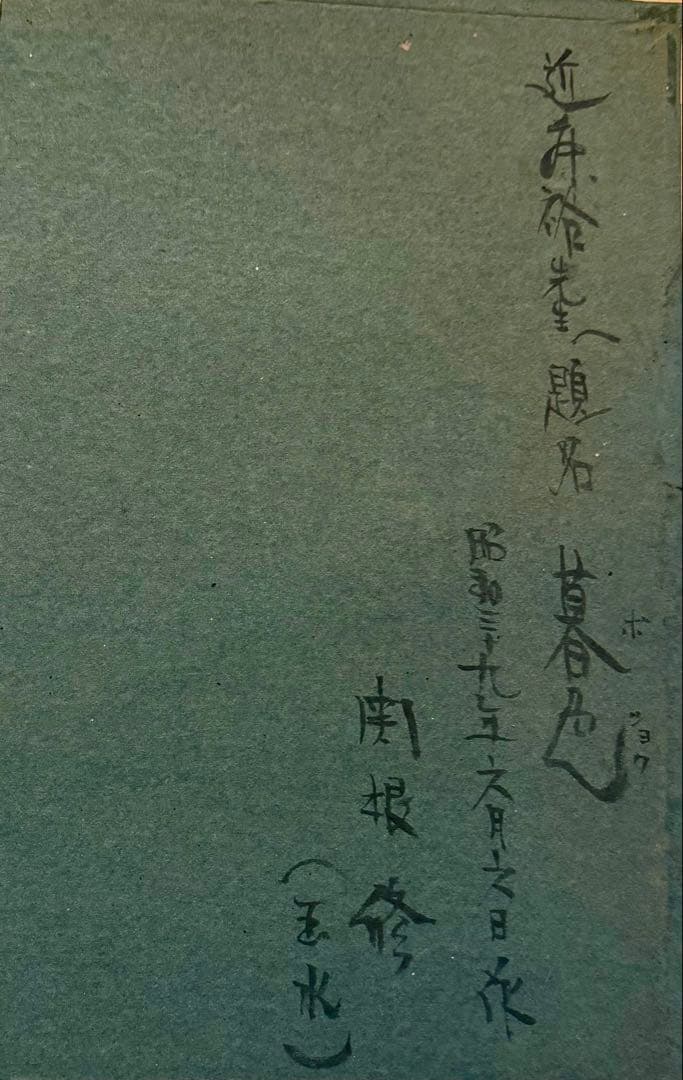 近藤裕先生へ 題名 暮色
ボ ショク
昭和三十九年六月六日作
関根 修
(玉水)